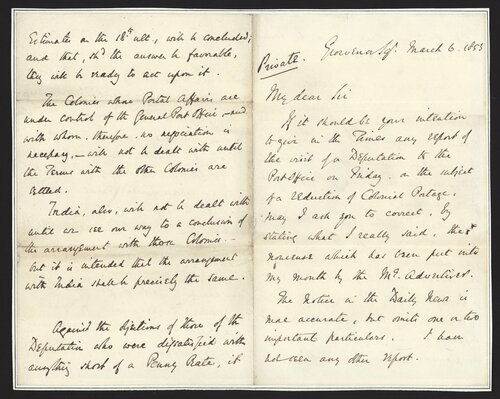 Grosvenor Sq. March 6. 1853
Private.
My dear Sir
If it should be your intention
to give in the Times any report of
the visit of a Deputation to the
Post Office on Friday, on the subject
of a reduction of Colonial Postage,
may I ask you to correct, by
stating what I really said, the
nonsense which has been put into
my mouth by the Mg. Advertiser.
The Notice in the Daily News is
more accurate, but omits one or two
important particulars. I have
not seen any other report.
Estimates on the 18th ult., will be concluded;
and that, shd. the answer be favorable,
they will be ready to act upon it.
The Colonies whose Postal Affairs are
under control of the General Post Office and
with whom, therefore no negociation is
necessary, — will not be dealt with until
the Terms with the other Colonies are
settled.
India, also, will not be dealt with
until we see our way to a conclusion of
the arrangement with those Colonies —
but it is intended that the arrangement
with India shall be precisely the same.
Against the objections of those of the
Deputation who were dissatisfied with
anything short of a Penny Rate, it